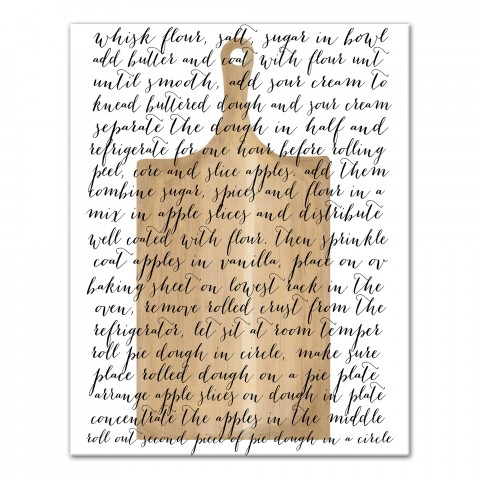 whisk flour, salt, sugar in bowl
add butter and coat with flour unt
until smooth, add sour cream to
knead buttered dough and sour cream
separate the dough in half and
refrigerate for one hour before rolling
peel, core and slice apples. add them
combine sugar, spices and flour in a
mix in apple slices and distribute
well coated with flour. Then sprinkle
coat apples in vanilla, place on ov
baking sheet on lowest rack in the
oven, remove rolled crust from the
refrigerator, let sit at room temper
roll pie dough in circle, make sure
place rolled dough on a pie plate
arrange apple slices on dough in plate
concentrate the apples in the middle
roll out second piece of pie dough in a circle